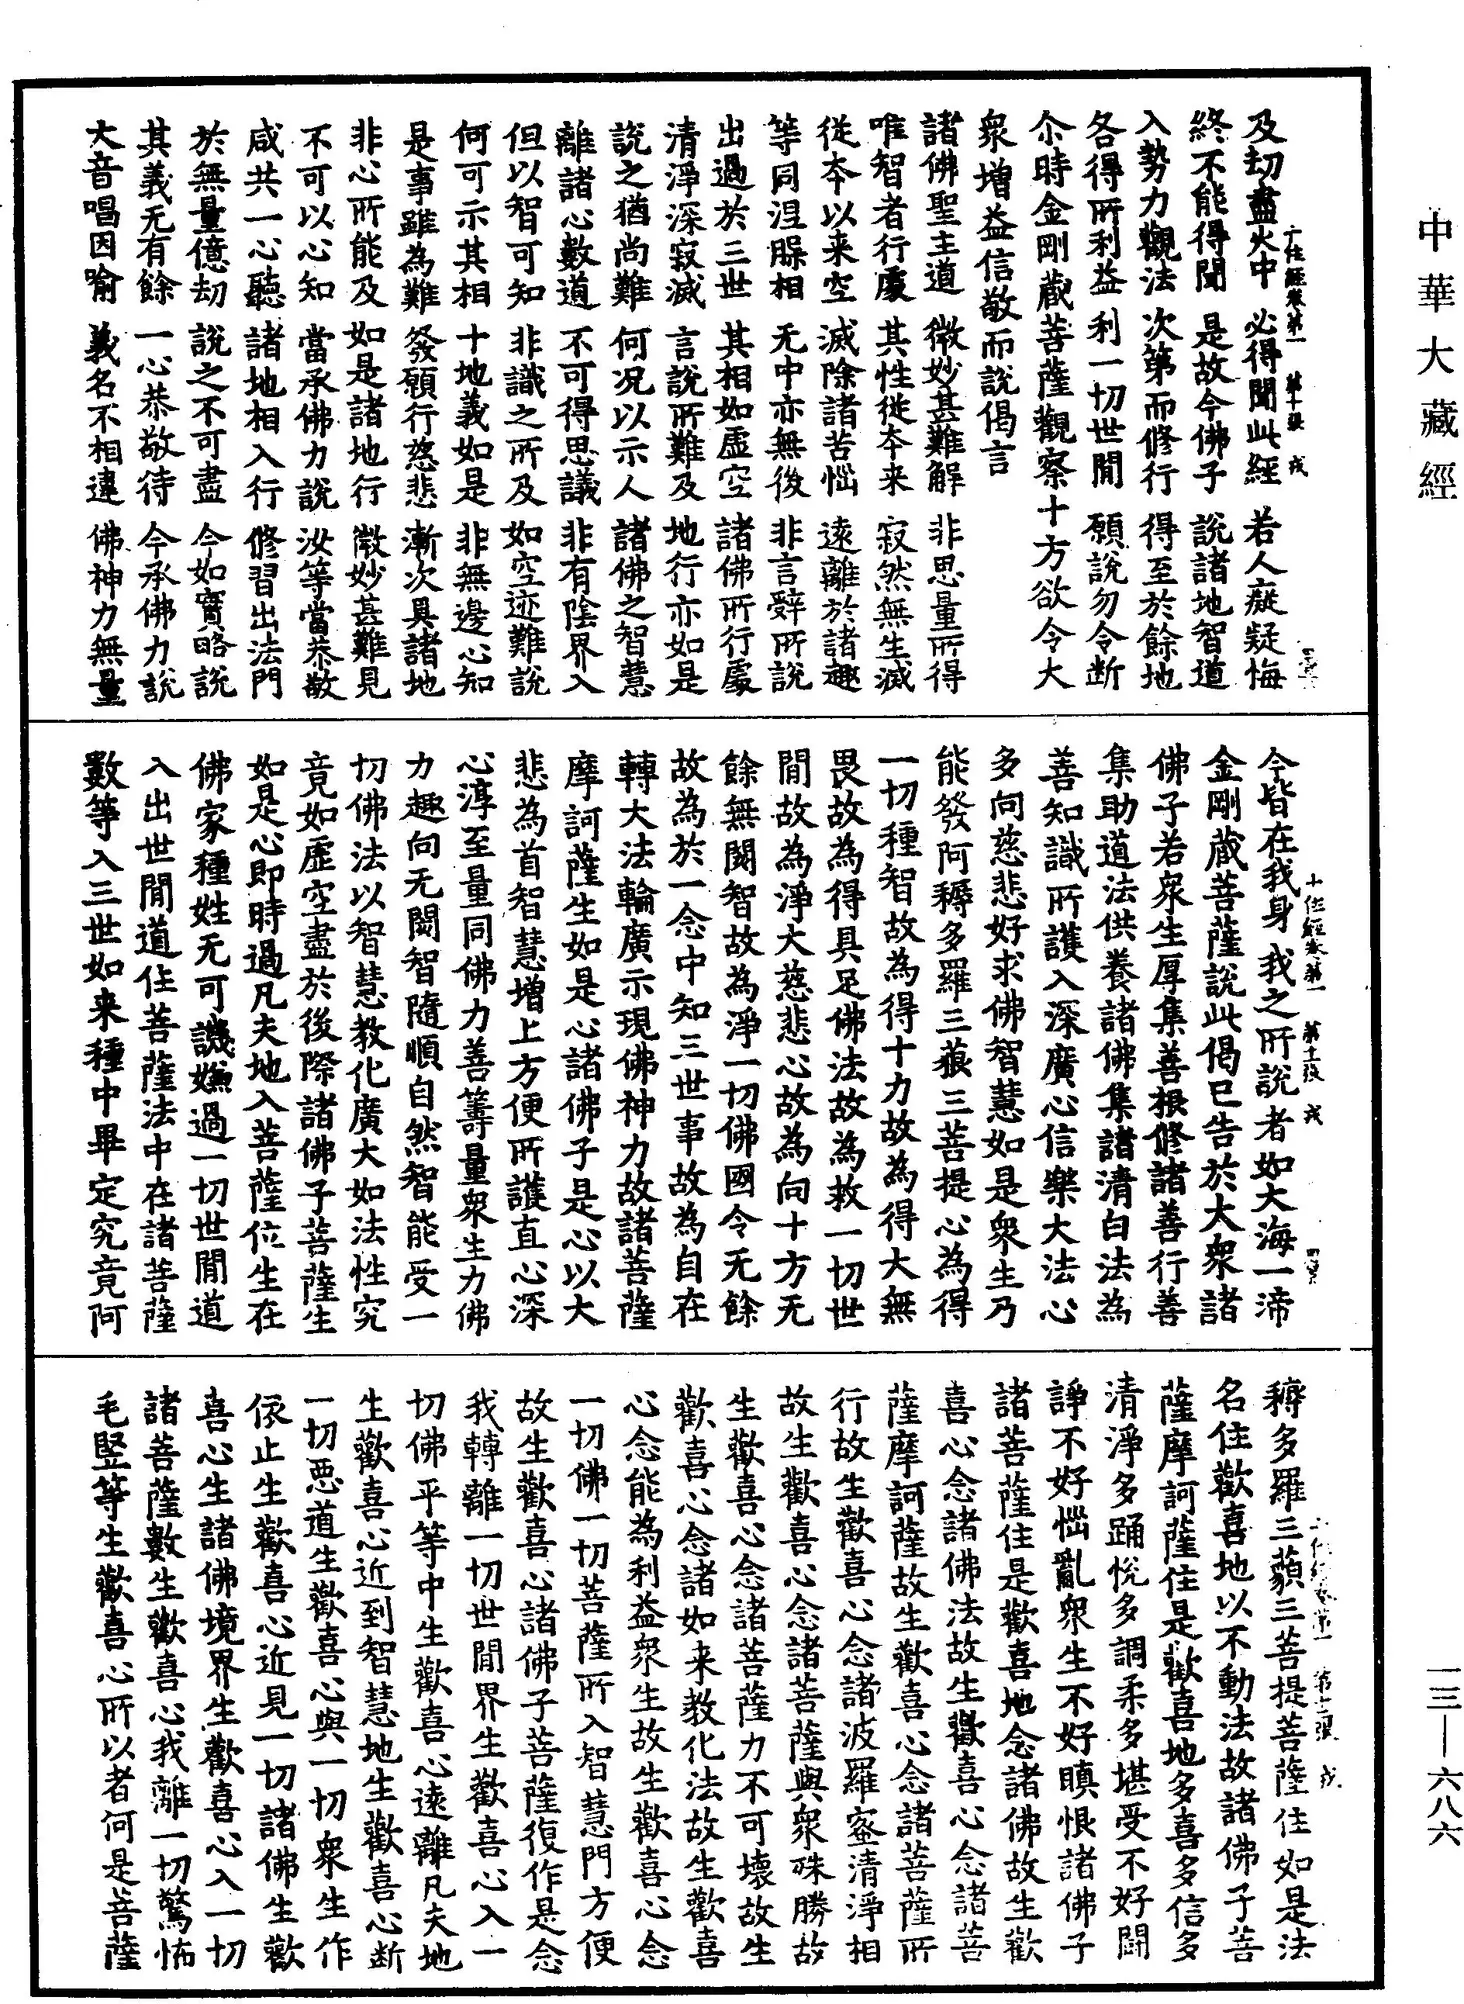 中華大藏經
及劫盡火中　必得聞此經　若人癡疑悔
終不能得聞　是故今佛子　說諸地智道
入勢力觀法　次第而修行　得至於餘地
各得所利益　利一切世閒　願說勿令断
尒時金剛蔵菩薩觀察十方欲令大
衆增益信敬而說偈言
諸佛聖主道　微妙甚難解　非思量所得
唯智者行處　其性從本来　寂然無生滅
從本以来空　滅除諸苦惱　遠離於諸趣
等同涅脲相　无中亦無後　非言辭所說
出過於三世　其相如虛空　諸佛所行處
清淨深寂滅　言說所難及　地行亦如是
說之猶尚難　何況以示人　諸佛之智慧
離諸心數道　不可得思議　非有陰界入
但以智可知　非識之所及　如空迹難說
何可示其相　十地義如是　非無邊心知
是事雖為難　發願行慈悲　漸次具諸地
非心所能及　如是諸地行　微妙甚難見
不可以心知　當承佛力說　汝等當恭敬
咸共一心聽　諸地相入行　修習出法門
於無量億劫　說之不可盡　今如實略說
其義无有餘　一心恭敬待　今承佛力說
大音唱因喻　義名不相違　佛神力無量
十住經卷第一　第十張　戎
今皆在我身　我之所說者　如大海一渧
金剛蔵菩薩說此偈已告於大衆諸
佛子若衆生厚集善根修諸善行善
集助道法供養諸佛集諸清白法為
善知識所護入深廣心信樂大法心
多向慈悲好求佛智慧如是衆生乃
能發阿耨多羅三藐三菩提心為得
一切種智故為得十力故為得大無
畏故為得具足佛法故為救一切世
閒故為淨大慈悲心故為向十方无
餘無閡智故為淨一切佛國令无餘
故為於一念中知三世事故為自在
轉大法輪廣示現佛神力故諸菩薩
摩訶薩生如是心諸佛子是心以大
悲為首智慧增上方便所護直心深
心淳至量同佛力善籌量衆生力佛
力趣向无閡智隨順自然智能受一
切佛法以智慧教化廣大如法性究
竟如虛空盡於後際諸佛子菩薩生
如是心即時過凡夫地入菩薩位生在
佛家種姓无可譏嫌過一切世閒道
入出世閒道住菩薩法中在諸菩薩
數等入三世如来種中畢定究竟阿
十住經卷第一　第十一張　戎
耨多羅三藐三菩提菩薩住如是法
名住歡喜地以不動法故諸佛子菩
薩摩訶薩住是歡喜地多喜多信多
清淨多踊悅多調柔多堪受不好鬪
諍不好惱亂衆生不好瞋恨諸佛子
諸菩薩住是歡喜地念諸佛故生歡
喜心念諸佛法故生歡喜心念諸菩
薩摩訶薩故生歡喜心念諸菩薩所
行故生歡喜心念諸波羅蜜清淨相
故生歡喜心念諸菩薩與衆殊勝故
生歡喜心念諸菩薩力不可壞故生
歡喜心念諸如来教化法故生歡喜
心念能為利益衆生故生歡喜心念
一切佛一切菩薩所入智慧門方便
故生歡喜心諸佛子菩薩復作是念
我轉離一切世閒界生歡喜心入一
切佛平等中生歡喜心遠離凡夫地
生歡喜心近到智慧地生歡喜心断
一切惡道生歡喜心與一切衆生作
依止生歡喜心近見一切諸佛生歡
喜心生諸佛境界生歡喜心入一切
諸菩薩數生歡喜心我離一切驚怖
毛竪等生歡喜心所以者何是菩薩
十住經卷第一　第十二張　戎
一三—六八六